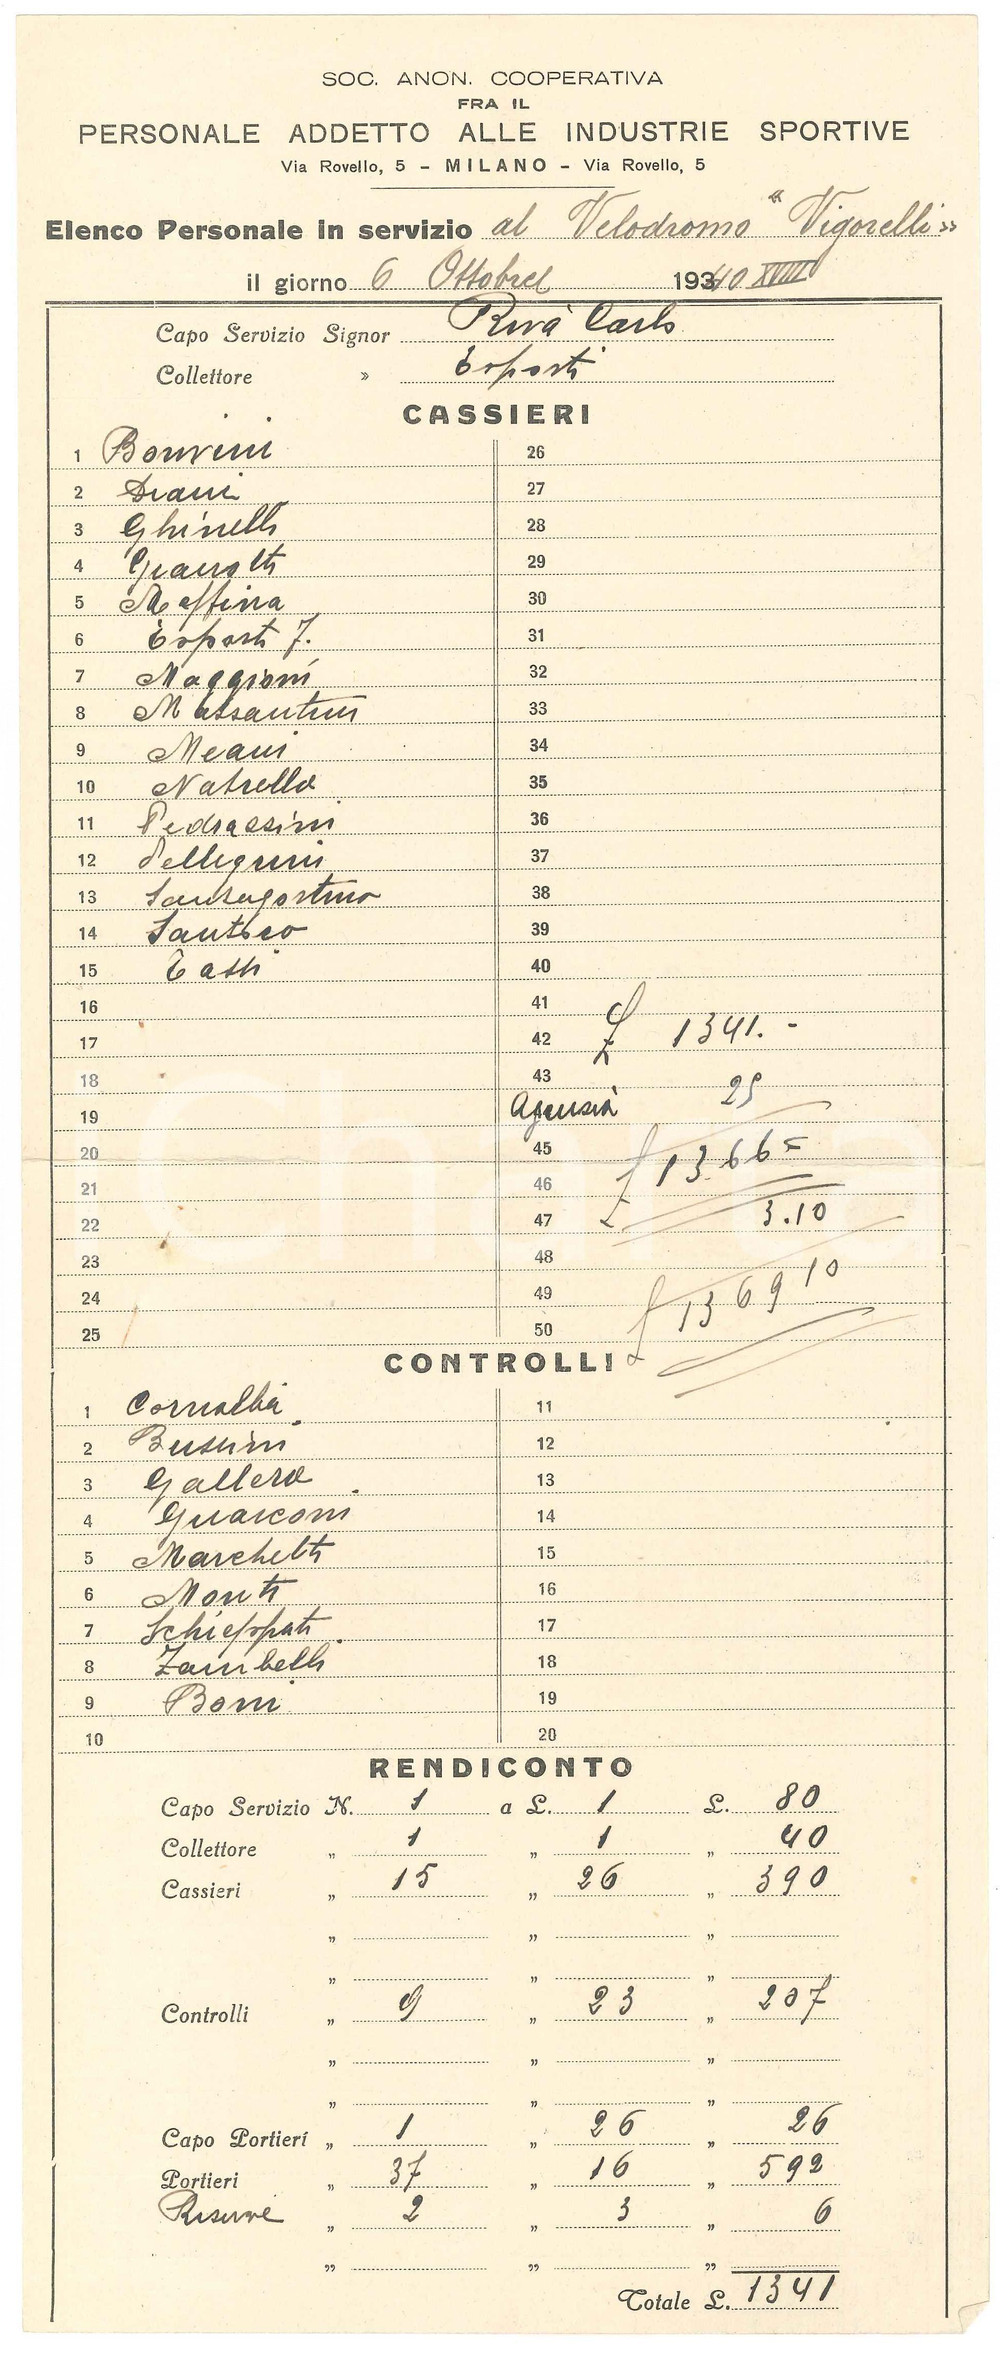 SOC. ANON. COOPERATIVA
FRA IL
PERSONALE ADDETTO ALLE INDUSTRIE SPORTIVE
Via Rovello, 5 – MILANO – Via Rovello, 5
Elenco Personale in servizio al Velodromo "Vigorelli"
il giorno 6 Ottobre 19340 XVIII
Capo Servizio Signor Riva Carlo
Collettore » Esposti
CASSIERI
1 Bonvini 26
2 27
3 Ghinelli 28
4 29
5 Messina 30
6 Esposti F. 31
7 Maggioni 32
8 Massantini 33
9 Meani 34
10 Natrella 35
11 Pedrazzini 36
12 Pellegrini 37
13 Santagostino 38
14 39
15 Tassi 40
16 41
17 42 £ 1341.-
18 43
19 Agenzia 25
20 45 £ 1366=
21 46
22 47 3.10
23 48
24 49 £ 1369 10
25 50
CONTROLLI
1 Cornalba 11
2 Bussini 12
3 Gallera 13
4 Guasconi 14
5 Marchetti 15
6 Monti 16
7 Schieppati 17
8 Zambelli 18
9 Boni 19
10 20
RENDICONTO
Capo Servizio N. 1 a L. 1 L. 80
Collettore „ 1 „ 1 „ 40
Cassieri „ 15 „ 26 „ 390
„ „ „
„ „ „
Controlli „ 9 „ 23 „ 207
„ „ „
„ „ „
Capo Portieri „ 1 „ 26 „ 26
Portieri „ 37 „ 16 „ 592
Riserve „ 2 „ 3 „ 6
„ „ „
Totale L. 1341